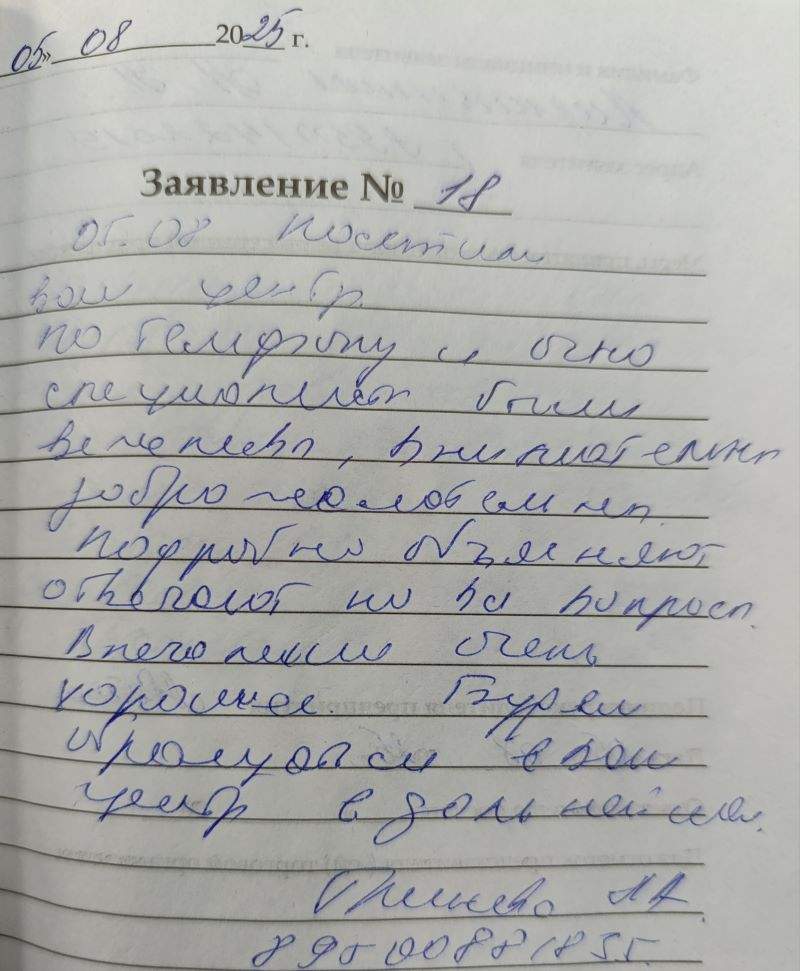 05» 08 2025 г.
Заявление № 18
05.08 посетили
ваш центр.
по телефону и очно
специалисты были
вежливы, внимательны
доброжелательны.
Подробно объясняют
отвечают на все вопросы.
Впечатление очень
хорошее. Будем
обращаться в ваш
центр в дальнейшем.